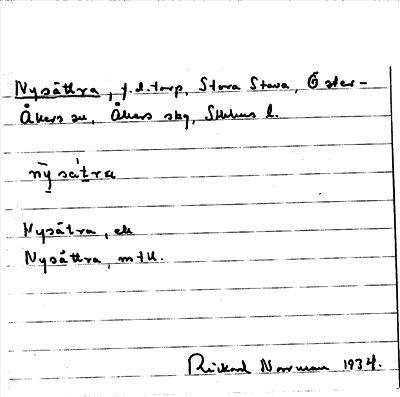 Nysättra, f.l.torp, Stora Stava, Öster-
Åkers sn, Åkers skg, Sthlms l.
nȳsàtra
Nysätra, ek
Nysättra, mtU.
Rickard Norrman 1934.